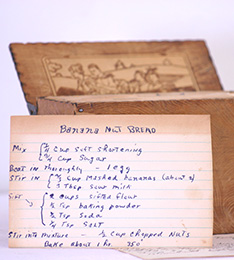 Banana Nut Bread
Mix { 1/4 Cup Soft shortening
3/4 Cup Sugar
Beat in thoroughly - 1 egg
Stir in Cup Mashed bananas (about
3 Tbsp sour milk
Sift { 2 Cups sifted flour
Tsp baking powder
1/2 Tsp Soda
Tsp Salt
Stir into mixture - 1/2 Cup Chopped Nuts
Bake about 1 hr 350°